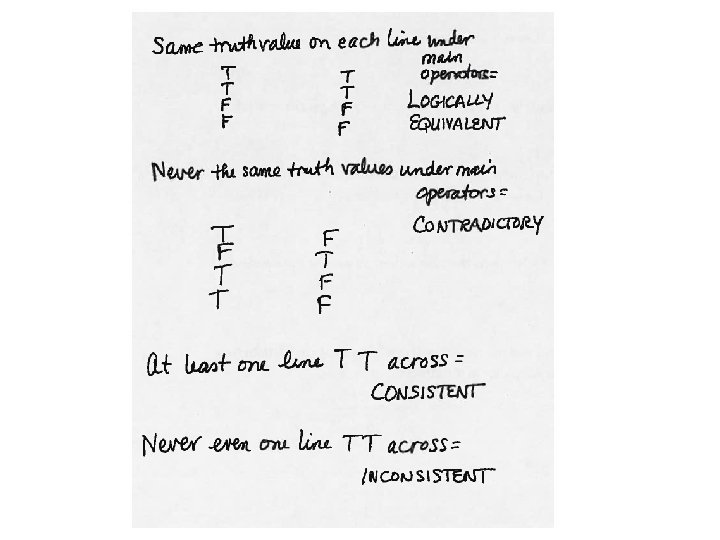 Same truth value on each line under
main
operators=
T T
T T
F F
F F
LOGICALLY
EQUIVALENT
Never the same truth values under main
operators=
CONTRADICTORY
T F
F T
T F
T F
At least one line T T across =
CONSISTENT
Never even one line TT across=
INCONSISTENT